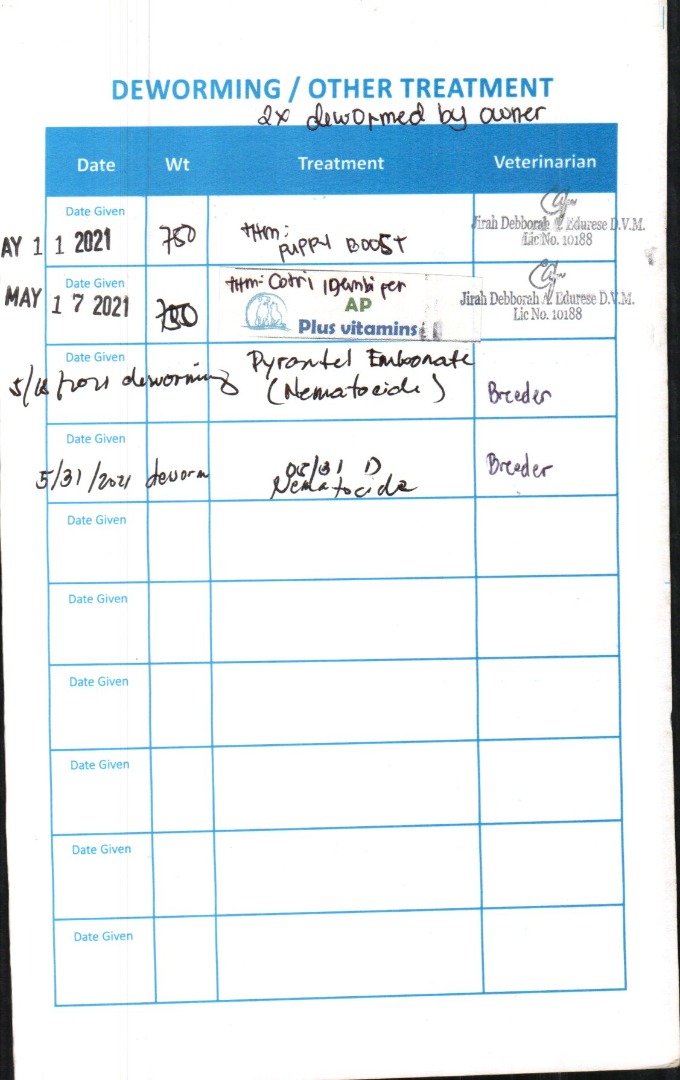 DEWORMING / OTHER TREATMENT
2x dewormed by owner
Date Wt Treatment Veterinarian
Date Given
AY 1 1 2021 750 tHm: PUPPY BOOST
Jirah Debborah A. Edurese D.V.M.
Lic No. 10188
Date Given
MAY 1 7 2021 tHm: Cotri
AP
Plus vitamins
Jirah Debborah A. Edurese D.V.M.
Lic No. 10188
Date Given
2021 deworming Pyrantel Embonate
(Nematocide) Breeder
Date Given
5/31/2021 deworm 05/31 Breeder
Nematocide
Date Given
Date Given
Date Given
Date Given
Date Given
Date Given